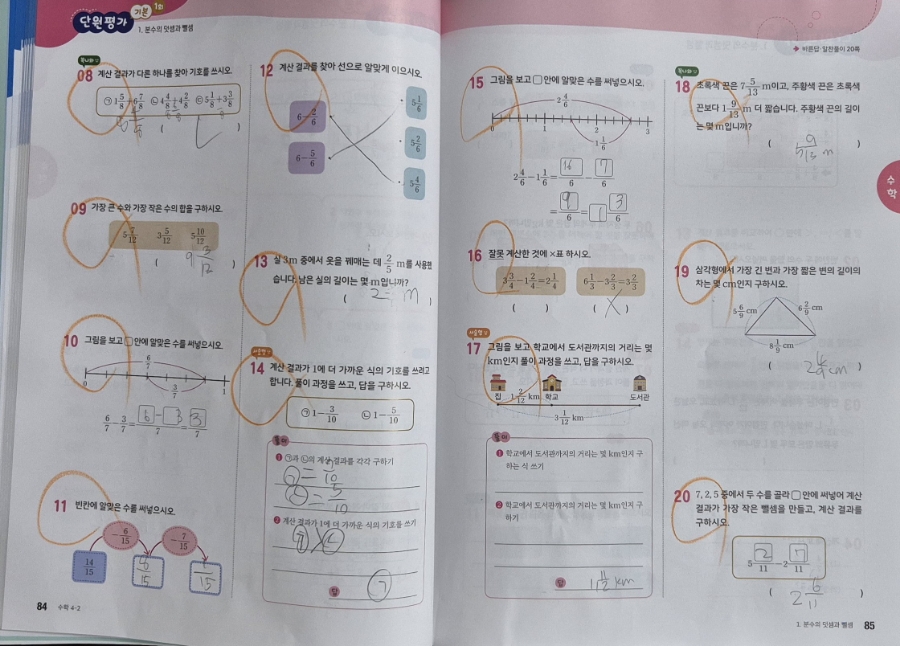 단원평가 기본 1회
1. 분수의 덧셈과 뺄셈
08 계산 결과가 다른 하나를 찾아 기호를 쓰시오.
㉠ 1 5/8 + 6 7/8 ㉡ 4 4/8 + 4 2/8 ㉢ 5 1/8 + 3 3/8
( )
09 가장 큰 수와 가장 작은 수의 합을 구하시오.
3 5/12 5 10/12
( 9 3/12 )
10 그림을 보고 □ 안에 알맞은 수를 써넣으시오.
6/7
0 1
3/7
6/7 - 3/7 = 6 - 3 / 7 = 3/7
11 빈칸에 알맞은 수를 써넣으시오.
- 6/15 - 7/15
14/15 8/15 1/15
84 수학 4-2
12 계산 결과를 찾아 선으로 알맞게 이으시오.
6 - 2/6
6 - 5/6
5 1/6
5 2/6
5 4/6
13 실 3 m 중에서 옷을 꿰매는 데 2/5 m를 사용했
습니다. 남은 실의 길이는 몇 m입니까?
( m )
서술형
14 계산 결과가 1에 더 가까운 식의 기호를 쓰려고
합니다. 풀이 과정을 쓰고, 답을 구하시오.
㉠ 1 - 3/10 ㉡ 1 - 5/10
풀이
❶ ㉠과 ㉡의 계산 결과를 각각 구하기
㉠ = 7/10
㉡ = 5/10
❷ 계산 결과가 1에 더 가까운 식의 기호를 쓰기
답 ㉠
바른답·알찬풀이 20쪽
15 그림을 보고 □ 안에 알맞은 수를 써넣으시오.
2 4/6
0 1 2 3
1 1/6
2 4/6 - 1 1/6 = 16/6 - 7/6
= 9/6 = 1 3/6
16 잘못 계산한 것에 ×표 하시오.
3 3/4 - 1 2/4 = 2 1/4 6 1/3 - 3 2/3 = 3 2/3
( ) ( × )
서술형
17 그림을 보고 학교에서 도서관까지의 거리는 몇
km인지 풀이 과정을 쓰고, 답을 구하시오.
집 1 2/12 km 학교 도서관
3 1/12 km
풀이
❶ 학교에서 도서관까지의 거리는 몇 km인지 구
하는 식 쓰기
❷ 학교에서 도서관까지의 거리는 몇 km인지 구
하기
답 1 11/12 km
18 초록색 끈은 7 5/13 m이고, 주황색 끈은 초록색
끈보다 1 9/13 m 더 짧습니다. 주황색 끈의 길이
는 몇 m입니까?
( 5 9/13 m )
수학
19 삼각형에서 가장 긴 변과 가장 짧은 변의 길이의
차는 몇 cm인지 구하시오.
5 6/9 cm 6 2/9 cm
8 1/9 cm
( 2 4/9 cm )
20 7, 2, 5 중에서 두 수를 골라 □ 안에 써넣어 계산
결과가 가장 작은 뺄셈을 만들고, 계산 결과를
구하시오.
5 2/11 - 2 7/11
( 2 6/11 )
1. 분수의 덧셈과 뺄셈 85